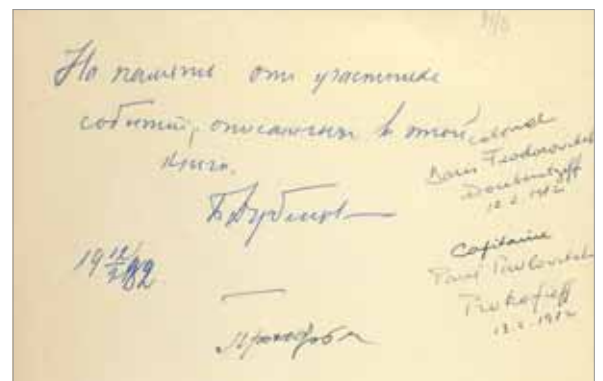 На память от участника
событий, описанных в этой
книге.
19 12/2 82
Прокофьев
colonel
Boris Feodorovitch
Doubentzoff
12.2.1982
Capitaine
Paul Pavlovitch
Prokofieff